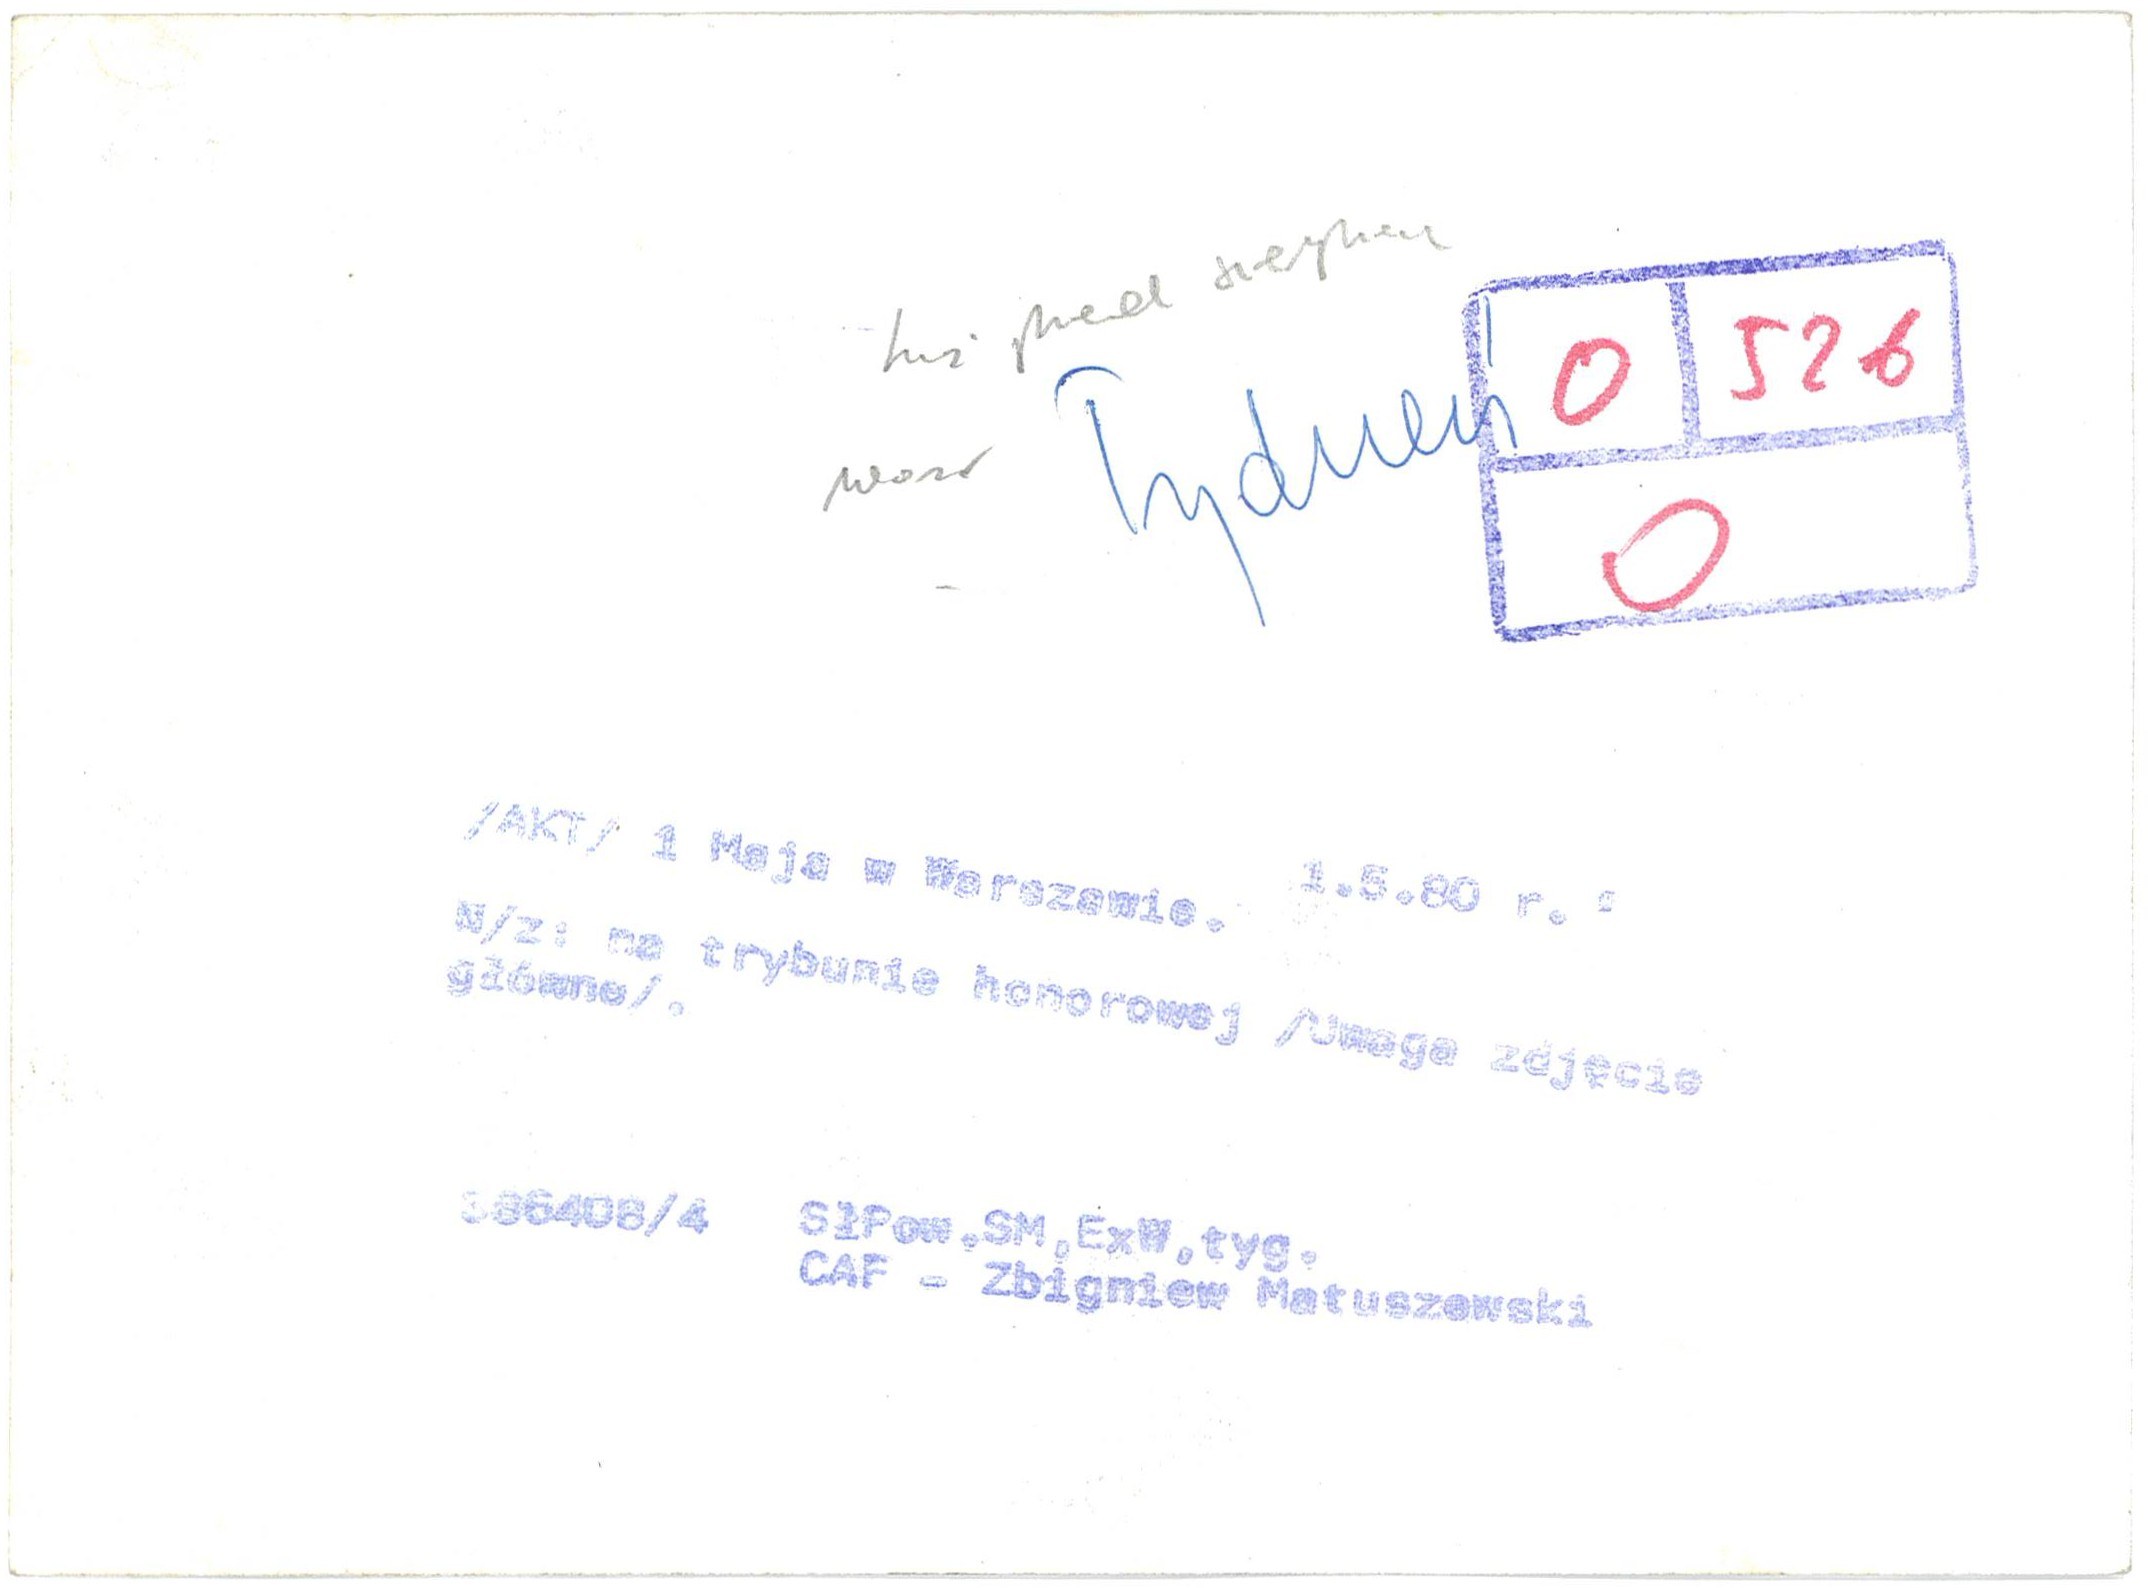 Tydzień
0 526
0
/AKT/ 1 Maja w Warszawie. 1.5.80 r.
N/z: na trybunie honorowej /Uwaga zdjęcie
główne/.
SłPow.SM,ExW,tyg.
CAF - Zbigniew Matuszewski